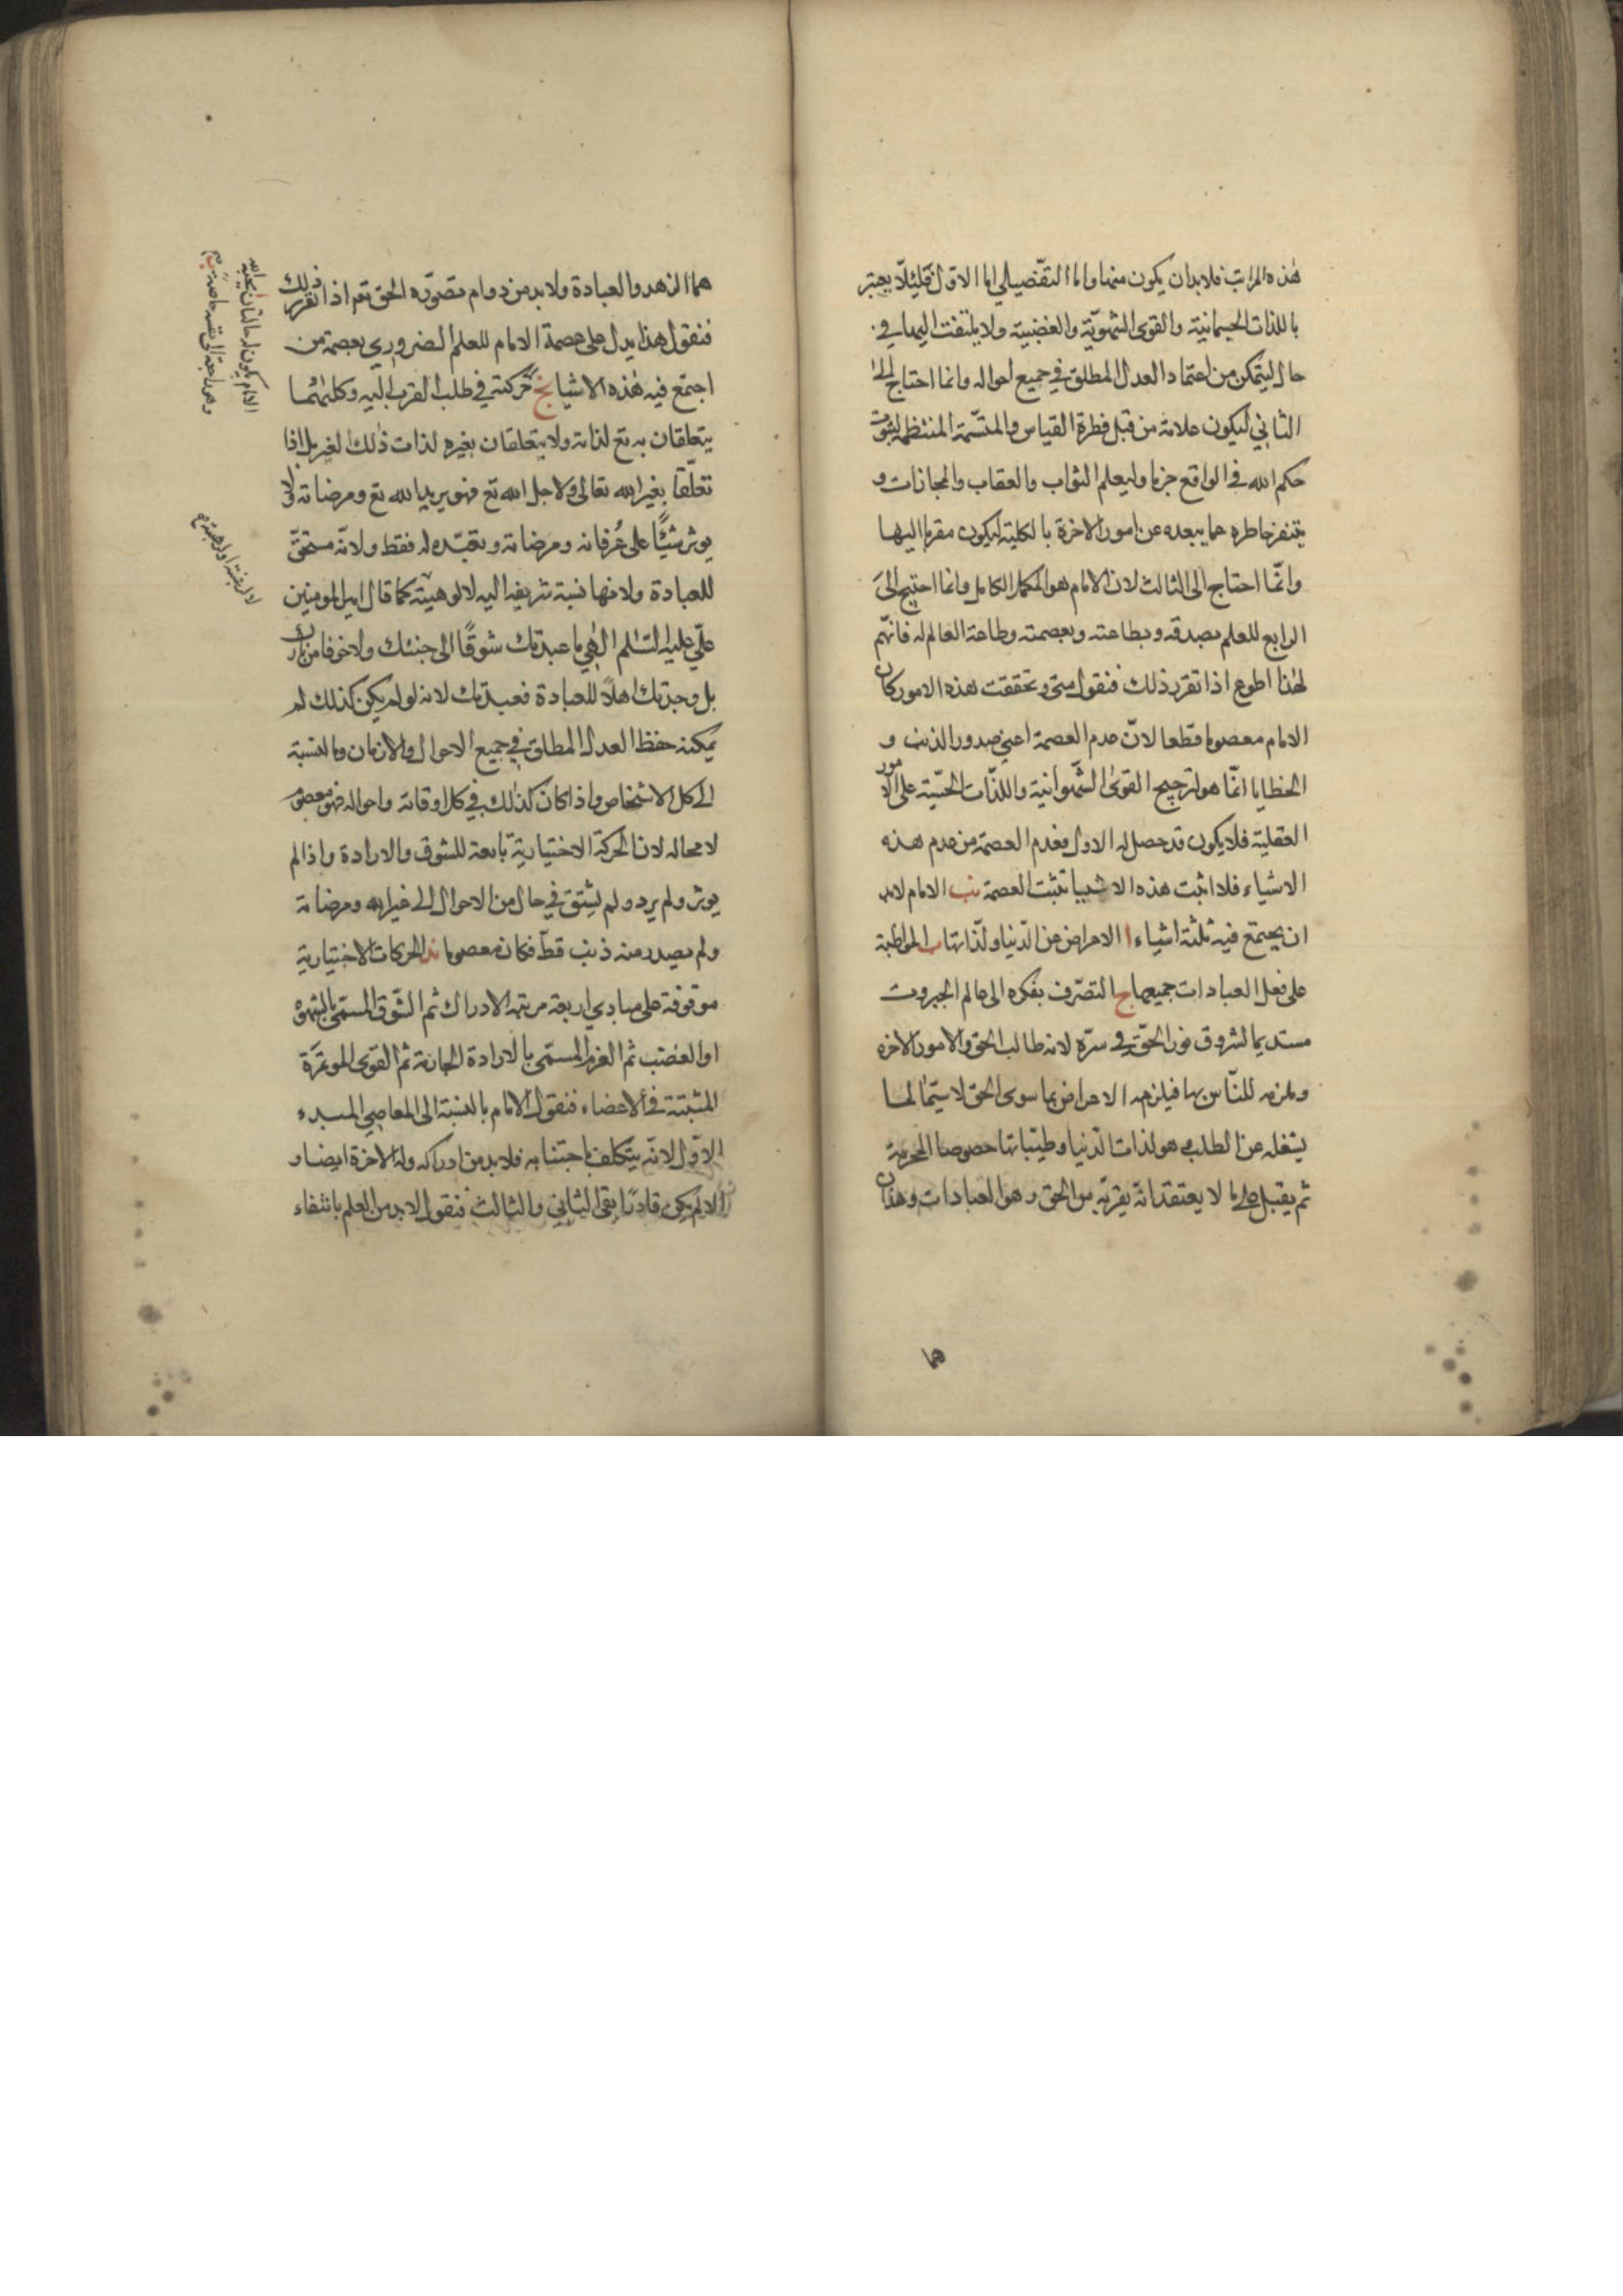 هذه المراتب فلابد ان يكون منها واما التفضيلي اما الاول فلئلا يعتبر
باللذات الجسمانية والقوى الشهوية والغضبية ولا يلتفت اليها في
حال ليتمكن من اعتماد العدل المطلق في جميع احواله وانما احتاج الى
الثاني ليكون علامة من قبل فطرة القياس والمتسمة المنتظمة لثبوت
حكم الله في الواقع جزما وليعلم الثواب والعقاب والمجازات و
يتنفر خاطره عما يبعده عن امور الاخرة بالكلية ليكون مقربا اليها
وانما احتاج الى الثالث لان الامام هو المكمل الكامل وانما احتيج الى
الرابع للعلم بصدقه وبطاعته وبعصمته وطاعة العالم له فانهم
لهذا اطوع اذا تقرر ذلك فنقول متى تحققت هذه الامور كان
الامام معصوما قطعا لان عدم العصمة اعني صدور الذنب و
الخطايا انما هو لترجيح القوى الشهوانية واللذات الحسية على الامور
العقلية فلا يكون قد حصل له الاول فعدم العصمة من عدم هذه
الاشياء فلا اثبت هذه الاشيا تثبت العصمة نب الامام لابد
ان يجتمع فيه ثلثة اشياء ا الاعراض عن الدنيا ولذاتها ب المواظبة
على فعل العبادات جميعها ج التصرف بفكره الى عالم الجبروت
مستديما لشروق نور الحق في سره لانه طالب الحق والامور الاخره
وملزم للناس بها فيلزمه الاعراض عما سوى الحق لا سيما لما
يشغله عن الطلب وهو لذات الدنيا وطيباتها خصوصا المحرمة
ثم يقبل على ما لا يعتقد انه يقربه من الحق وهو العبادات وهذان
هما
هما الزهد والعبادة ولابد من دوام تصوره الحق تعم اذا تقرر ذلك
فنقول هذا يدل على عصمة الامام للعلم الضروري بعصمة من
اجتمع فيه هذه الاشيا نج حركته في طلب القرب اليه وكليتهما
يتعلقان به تع لذاته ولا يتعلقان بغيره لذات ذلك الغير بل اذا
تعلقا بغير الله تعالى فلاجل الله تع فهو يريد الله تع ومرضاته ولا
يوثر شيئا على عرفانه ومرضاته وتعبده له فقط ولانه مستحق
للعبادة ولانها نسبة شريفة اليه لالوهيته كما قال امير المومنين
علي عليه السلم الهي ما عبدتك شوقا الى جنتك ولا خوفا من نارك
بل وجدتك اهلا للعبادة فعبدتك لانه لو لم يكن كذلك لم
يمكنه حفظ العدل المطلق في جميع الاحوال والازمان وبالنسبة
الى كل الاشخاص واذا كان كذلك في كل اوقاته واحواله فهو معصوم
لا محاله لان الحركة الاختيارية تابعة للشوق والارادة واذا لم
يوثر ولم يرد ولم يشتق في حال من الاحوال الى غير الله ومرضاته
ولم يصدر منه ذنب قط فكان معصوما ند الحركات الاختيارية
موقوفة على مبادي اربعة مرتبة الادراك ثم الشوق المسمى بالشهوة
او الغضب ثم العزم المسمى بالارادة الجازمة ثم القوى الموثرة
المثبتة في الاعضاء فنقول الامام بالنسبة الى المعاصي المبدء
الاول لانه يتكلف باجتنابه فلابد من ادراكه وله الاخرة ايضا و
الا لم يكن قادرا بقي الثاني والثالث فنقول لابد من العلم بانتفاء
الامام يكون له حالتان محبة الله
لا لرغبة او لرهبة